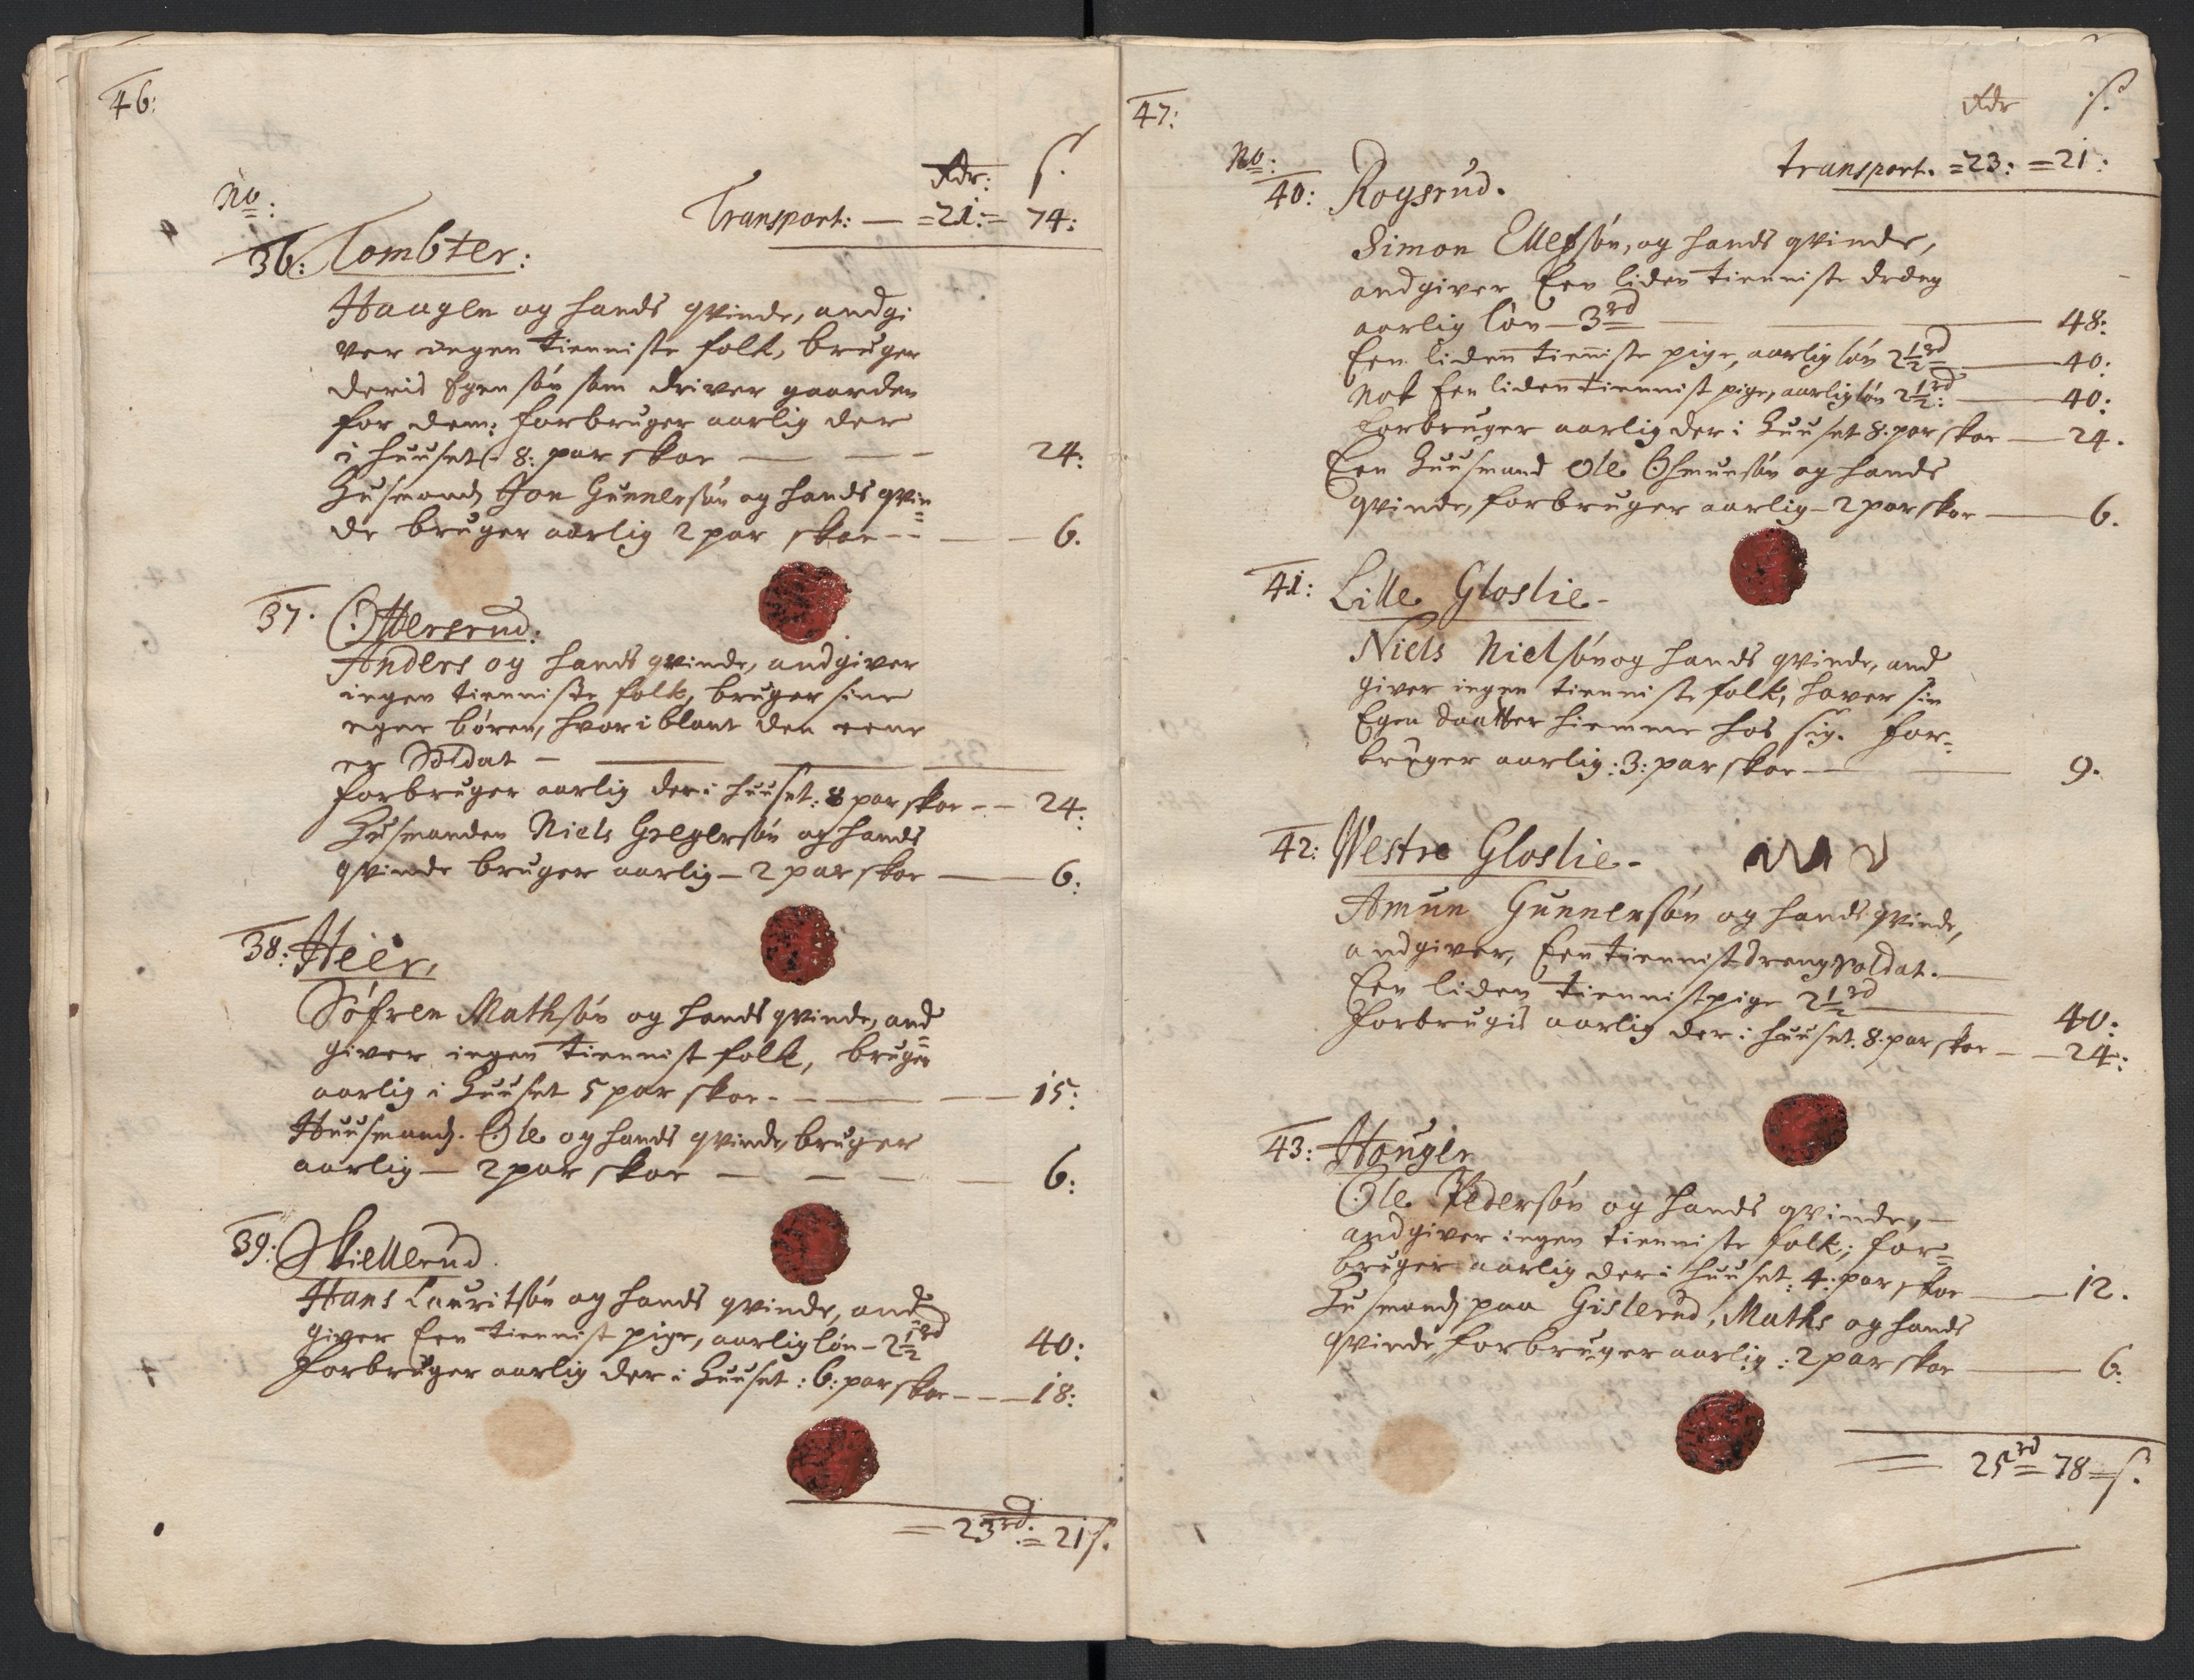 46:
Rdr: s.
No:
Transport: — =21:= 74:
36: Tombter:
Haagen og hands qvinde, andgi
ver ingen tienniste folk, bruger
deris Egen søn som driver gaarden
for dem: forbruger aarlig der
i huuset - 8: par skoe — — - 24:
Husmand Jon Gunnersøn og hands qvin=
de bruger aarlig 2 par skoe - - — - 6.
37. Ottersrud:
Anders og hands qvinde, andgiver
ingen tienniste folk, bruger sine
egne børen, hvor iblant den eene
er Soldat —
forbruger aarlig der i huuset: 8 par skoe - - 24:
Husmanden Niels Gregersøn og hands
qvinde bruger aarlig - 2 par skoe — 6:
38: Heer,
Søfren Mathsøn og hands qvinde, and=
giver ingen tiennist folk, bruger
aarlig i Huuset 5 par skoe. - — — 15:
Huusmand. Ole og hands qvinde, bruger
aarlig — 2 par skoe — - - — 6:
39: Skiellerud.
Hans Lauritsøn og hands qvinde, and
giver Een tiennist pige, aarlig løn - 2½ rd 40:
Forbruger aarlig der i Huuset: 6: par skoe - - - 18:
= 23 rd. = 21 s.
47:
Rdr s.
No:
transport. =23: =21:
40: Roysrud.
Simon Ellefsøn, og hands qvinde,
andgiver Een liden tienniste dreng
aarlig løn - 3 rd — 48:
Een liden tienniste pige, aarlig løn 2½ rd — 40:
Nok Een liden tiennist pige, aarlig løn 2½ rd: — 40:
Forbruger aarlig der i Huuset 8. par skoe — 24.
Een Huusmand Ole Ohmunsøn og hands
qvinde, forbruger aarlig - 2 par skoe — 6.
41: Lille Gloslie -
Niels Nielsøn og hands qvinde, and
giver ingen tienniste folk, haver sin
Egen daatter hiemme hos sig. for=
bruger aarlig: 3: par skoe — 9.
42: Westre Gloslie -
Amun Gunnersøn og hands qvinde,
andgiver, Een tiennist dreng soldat. —
Een liden tiennist pige 2½ rd — 40:
Forbrugis aarlig der i huuset. 8. par skoe - - 24:
43: Hougen
Ole Pedersøn og hands qvinde, —
andgiver ingen tienniste folk; for=
bruger aarlig der i huuset. 4: par skoe — 12.
Husmand paa Gislerud, Maths og hands
qvinde, forbruger aarlig: 2 par skoe — 6:
= 25 rd = 78 = s.